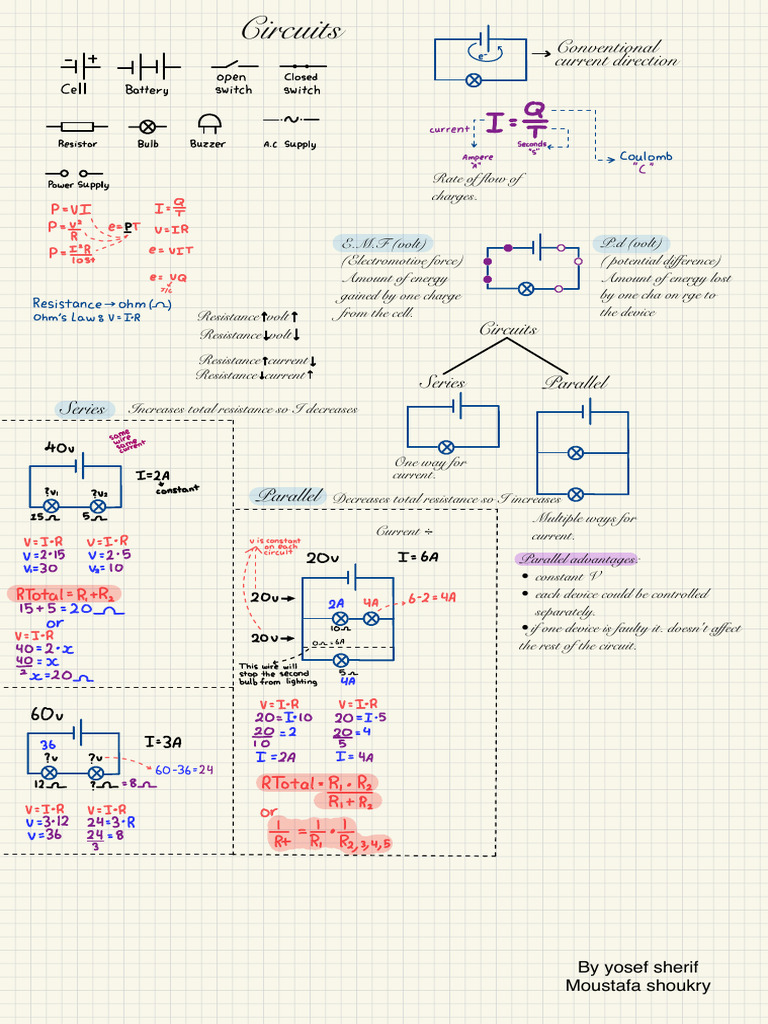 Circuits
- +
Cell
Battery
open
switch
Closed
switch
Resistor
Bulb
Buzzer
A.C Supply
Power Supply
e-
Conventional
current direction
I = Q/T
current
Ampere
"A"
Seconds
"S"
Coulomb
"C"
Rate of flow of
charges.
P=VI
P=V²/R
e=PT
I=Q/T
V=IR
e=VIT
e=VQ
J/C
Resistance→ohm(Ω)
Ohm's Law: V=I•R
Resistance↑volt↑
Resistance↓volt↓
Resistance↑current↓
Resistance↓current↑
E.M.F (volt)
(Electromotive force)
Amount of energy
gained by one charge
from the cell.
P.d (volt)
( potential difference)
Amount of energy lost
by one cha on rge to
the device
Circuits
Series
Parallel
One way for
current.
Multiple ways for
current.
Series
Increases total resistance so I decreases
40v
same
wire
same
current
I=2A
constant
?v₁
?v₂
15Ω
5Ω
V=I•R
V=2•15
V₁=30
V=I•R
V=2•5
V₂=10
RTotal=R₁+R₂
15+5=20Ω
or
V=I•R
40=2•x
40/2=x
x=20Ω
60v
I=3A
36
?v
?v
60-36=24
12Ω
?Ω=8Ω
V=I•R
V=3•12
V=36
V=I•R
24=3•R
24/3=8
Parallel
Decreases total resistance so I increases
Current ÷
v is constant
on each
circuit
20v
I=6A
20v→
2A
4A
6-2=4A
10Ω
20v→
0Ω=6A
This wire will
stop the second
bulb from lighting
5Ω
4A
V=I•R
20=I•10
20/10=2
I=2A
V=I•R
20=I•5
20/5=4
I=4A
RTotal=R₁•R₂/R₁+R₂
or
1/Rt=1/R₁•1/R₂,₃,₄,₅
Parallel advantages:
• constant V
• each device could be controlled
separately.
• if one device is faulty it. doesn't affect
the rest of the circuit.
By yosef sherif
Moustafa shoukry